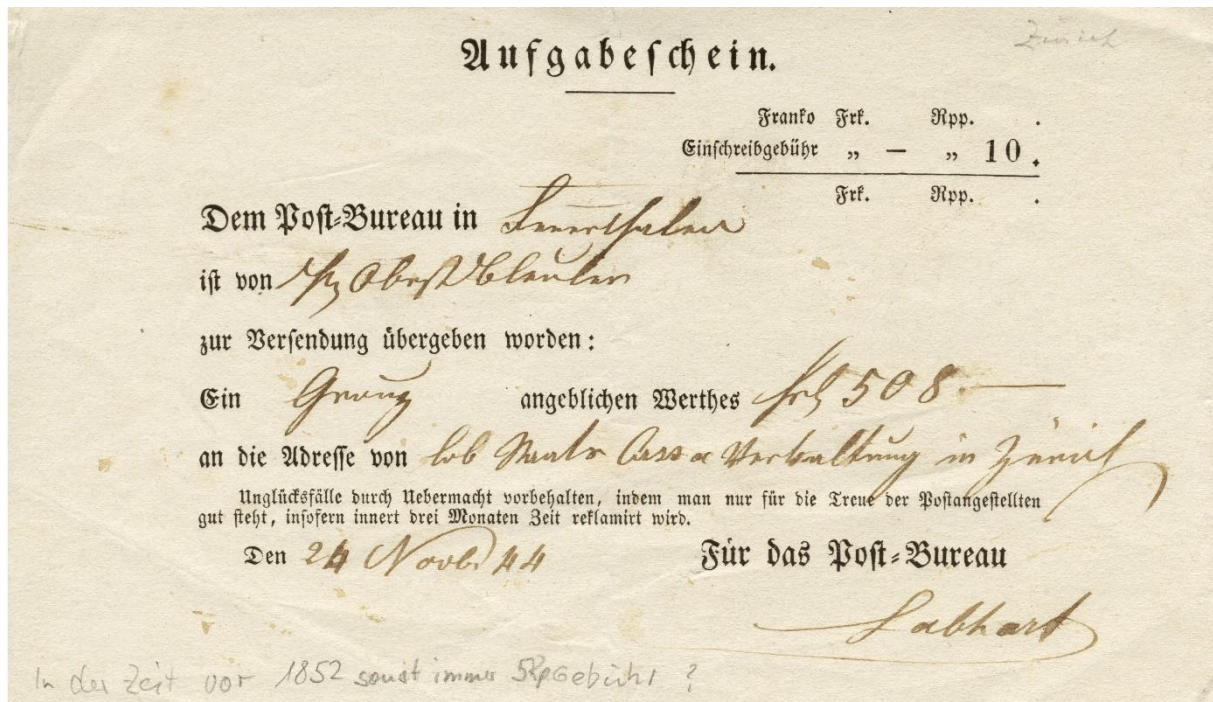 Zürich
Aufgabeschein.
Franko Frk. Rpp. .
Einschreibgebühr „ — „ 10.
Frk. Rpp. .
Dem Post-Bureau in Feuerthalen
ist von Obrist Bleuler
zur Versendung übergeben worden:
Ein Group angeblichen Werthes frk 508 —
an die Adresse von lob Staats Cassa Verwaltung in Zürich
Unglücksfälle durch Uebermacht vorbehalten, indem man nur für die Treue der Postangestellten
gut steht, insofern innert drei Monaten Zeit reklamirt wird.
Den 24 Novb. 44 Für das Post-Bureau
Labhart
In der Zeit vor 1852 sonst immer 5Rp Gebühr ?